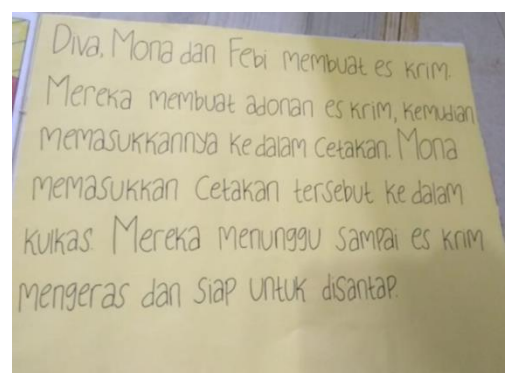 Diva, Mona dan Febi membuat es krim.
Mereka membuat adonan es krim, kemudian
memasukkannya ke dalam cetakan. Mona
memasukkan cetakan tersebut ke dalam
kulkas. Mereka menunggu sampai es krim
mengeras dan siap untuk disantap.